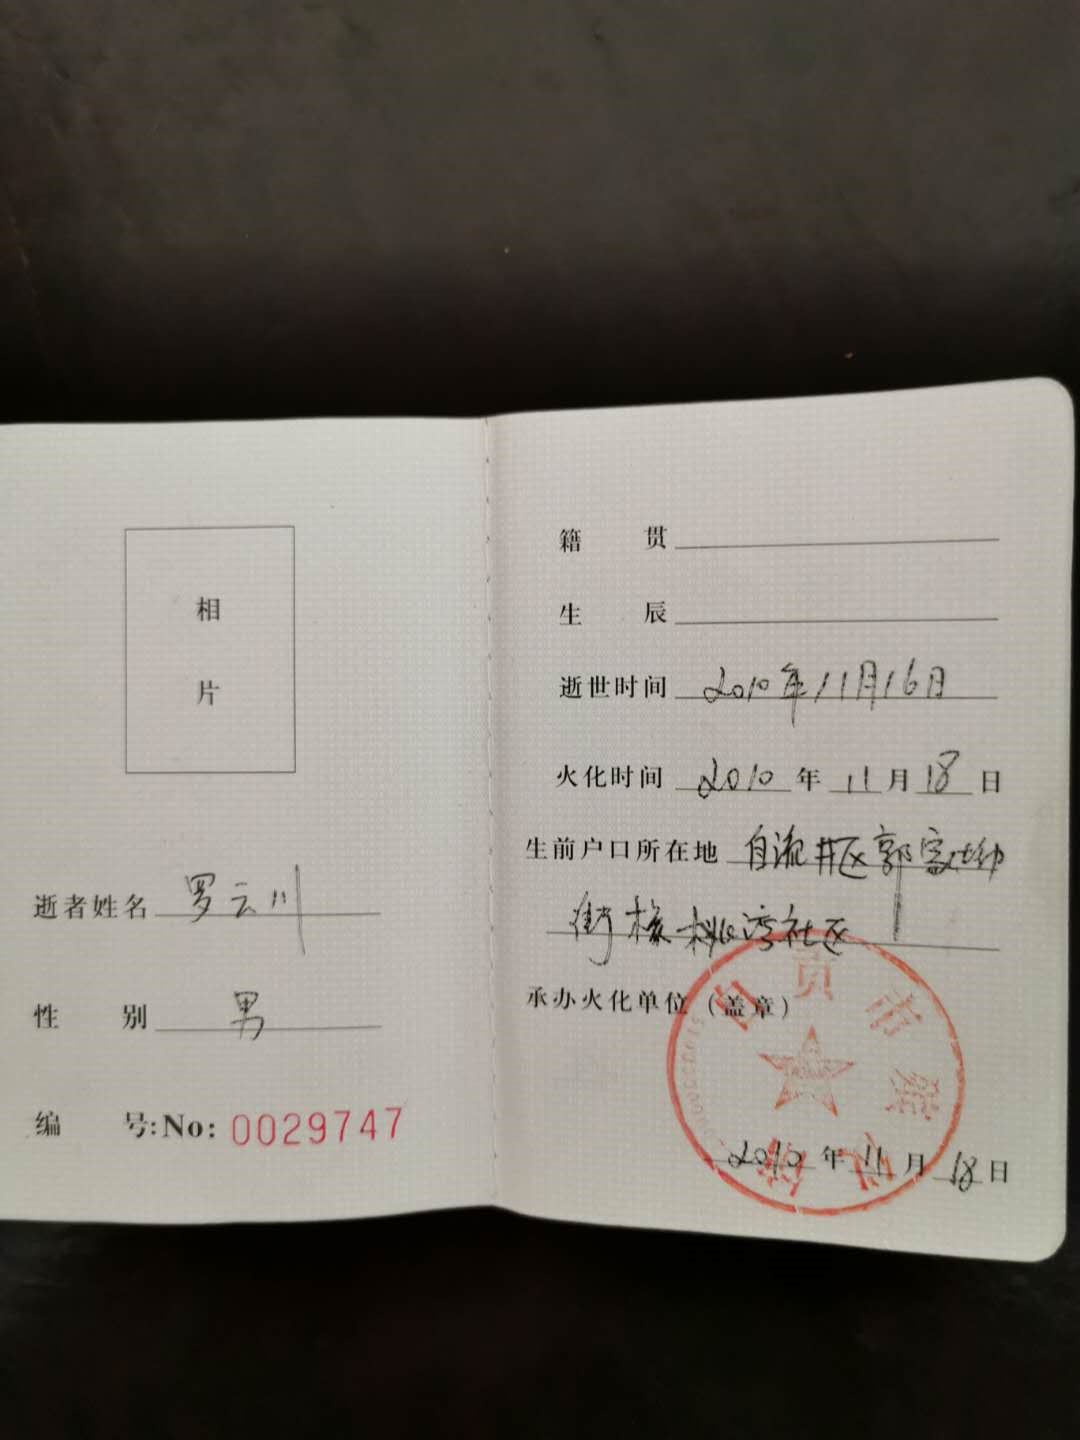 相
片
逝者姓名 罗云川
性 别 男
编 号:No: 0029747
籍 贯
生 辰
逝世时间 2010年11月16日
火化时间 2010 年 11 月 18 日
生前户口所在地 自流井区郭家坳
街核桃湾社区
承办火化单位（盖章）
自贡市殡
2010 年 11 月 18 日